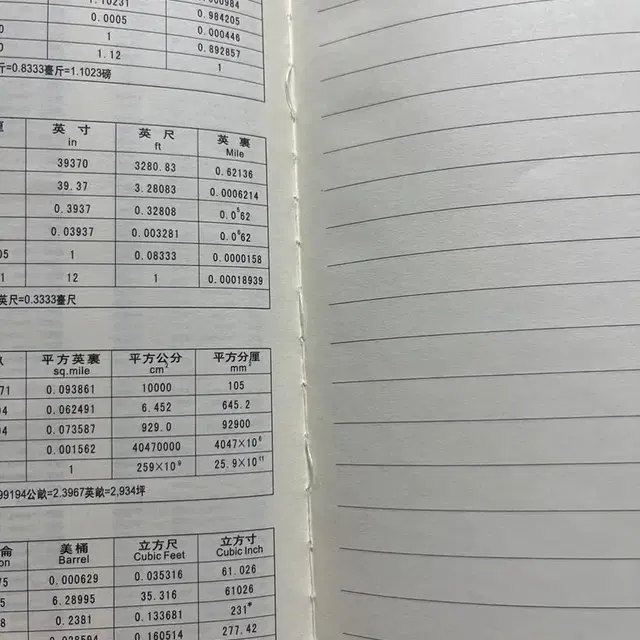 1.10231 0.000984
0.0005 0.984205
1 0.000446
1.12 0.892857
1
斤=0.8333臺斤=1.1023磅
英寸 英尺 英裏
in ft Mile
39370 3280.83 0.62136
39.37 3.28083 0.0006214
0.3937 0.32808 0.0⁵62
0.03937 0.003281 0.0⁶62
05 1 0.08333 0.0000158
1 12 1 0.00018939
英尺=0.3333臺尺
平方英裏 平方公分 平方分厘
sq.mile cm² mm²
71 0.093861 10000 105
04 0.062491 6.452 645.2
04 0.073587 929.0 92900
0.001562 40470000 4047×10⁶
1 259×10⁹ 25.9×10¹¹
99194公畝=2.3967英畝=2,934坪
侖 美桶 立方尺 立方寸
on Barrel Cubic Feet Cubic Inch
75 0.000629 0.035316 61.026
5 6.28995 35.316 61026
8 0.2381 0.133681 231*
0.028594 0.160514 277.42